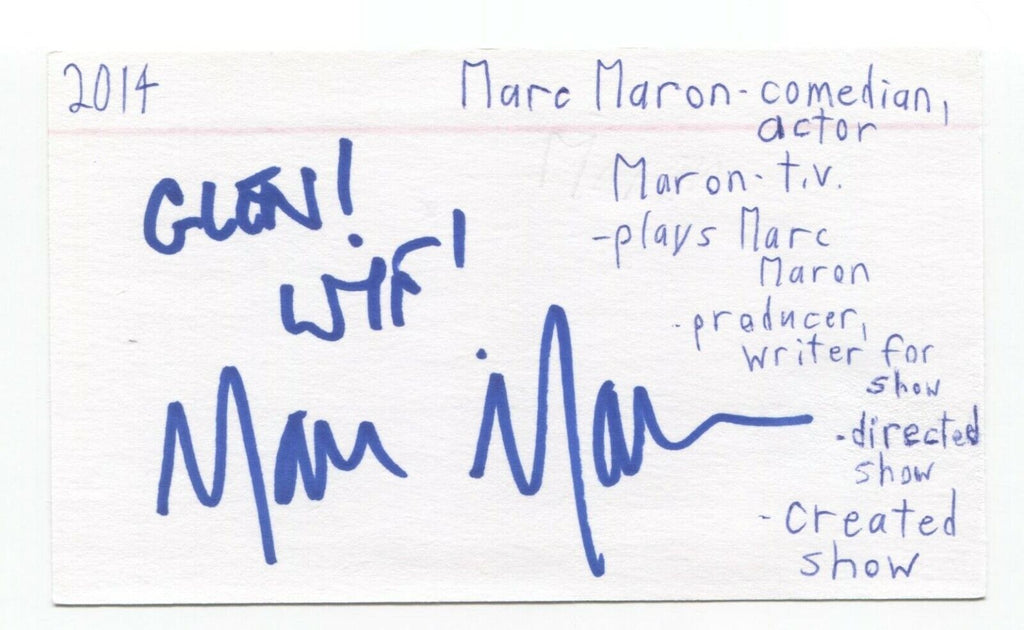 2014
Marc Maron - comedian,
actor
Maron - t.v.
- plays Marc
Maron
- producer,
writer for
show
- directed
show
- Created
show
GLEN!
WTF!
Marc Maron